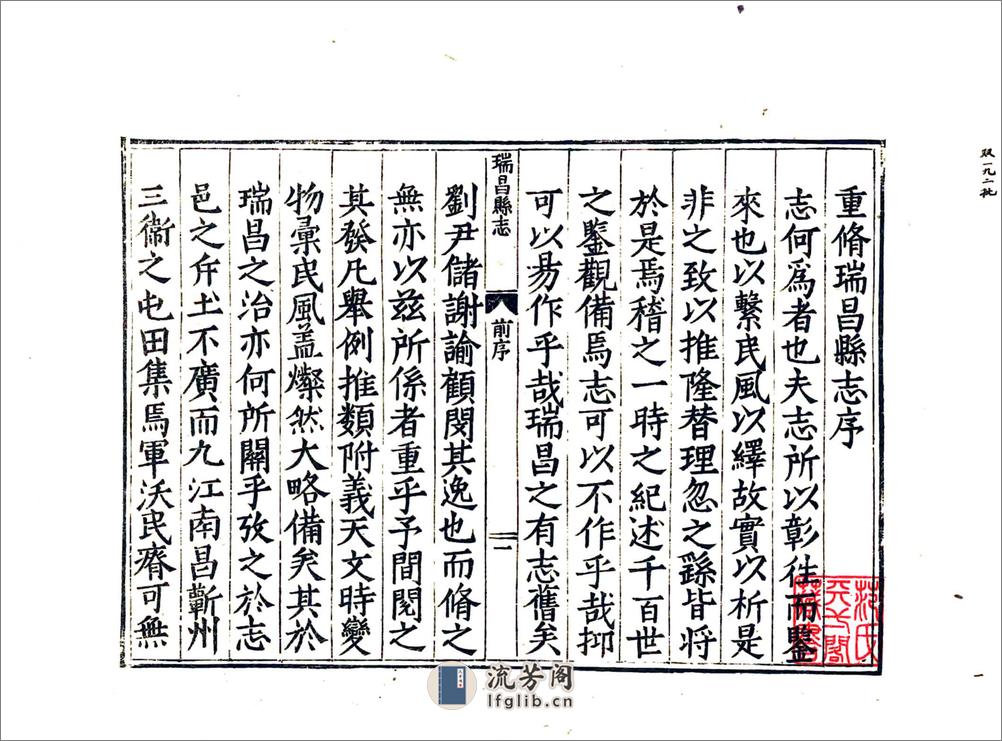 重脩瑞昌縣志序
志何爲者也夫志所以彰徃而鑒
來也以繫民風以繹故實以析是
非之致以推隆替理忽之繇皆将
於是焉稽之一時之紀述千百世
之鑒觀備焉志可以不作乎哉抑
可以易作乎哉瑞昌之有志舊矣
瑞昌縣志
前序
一
劉尹儲謝諭顧閔其逸也而脩之
無亦以兹所係者重乎予間閱之
其發凡舉例推類附義天文時變
物彚民風盖燦然大略備矣其於
瑞昌之治亦何所關乎攷之於志
邑之斥土不廣而九江南昌蘄州
三衛之屯田集焉軍沃民瘠可無
范氏
天一閣
藏書
双一九二批
流芳阁
lfglib.cn